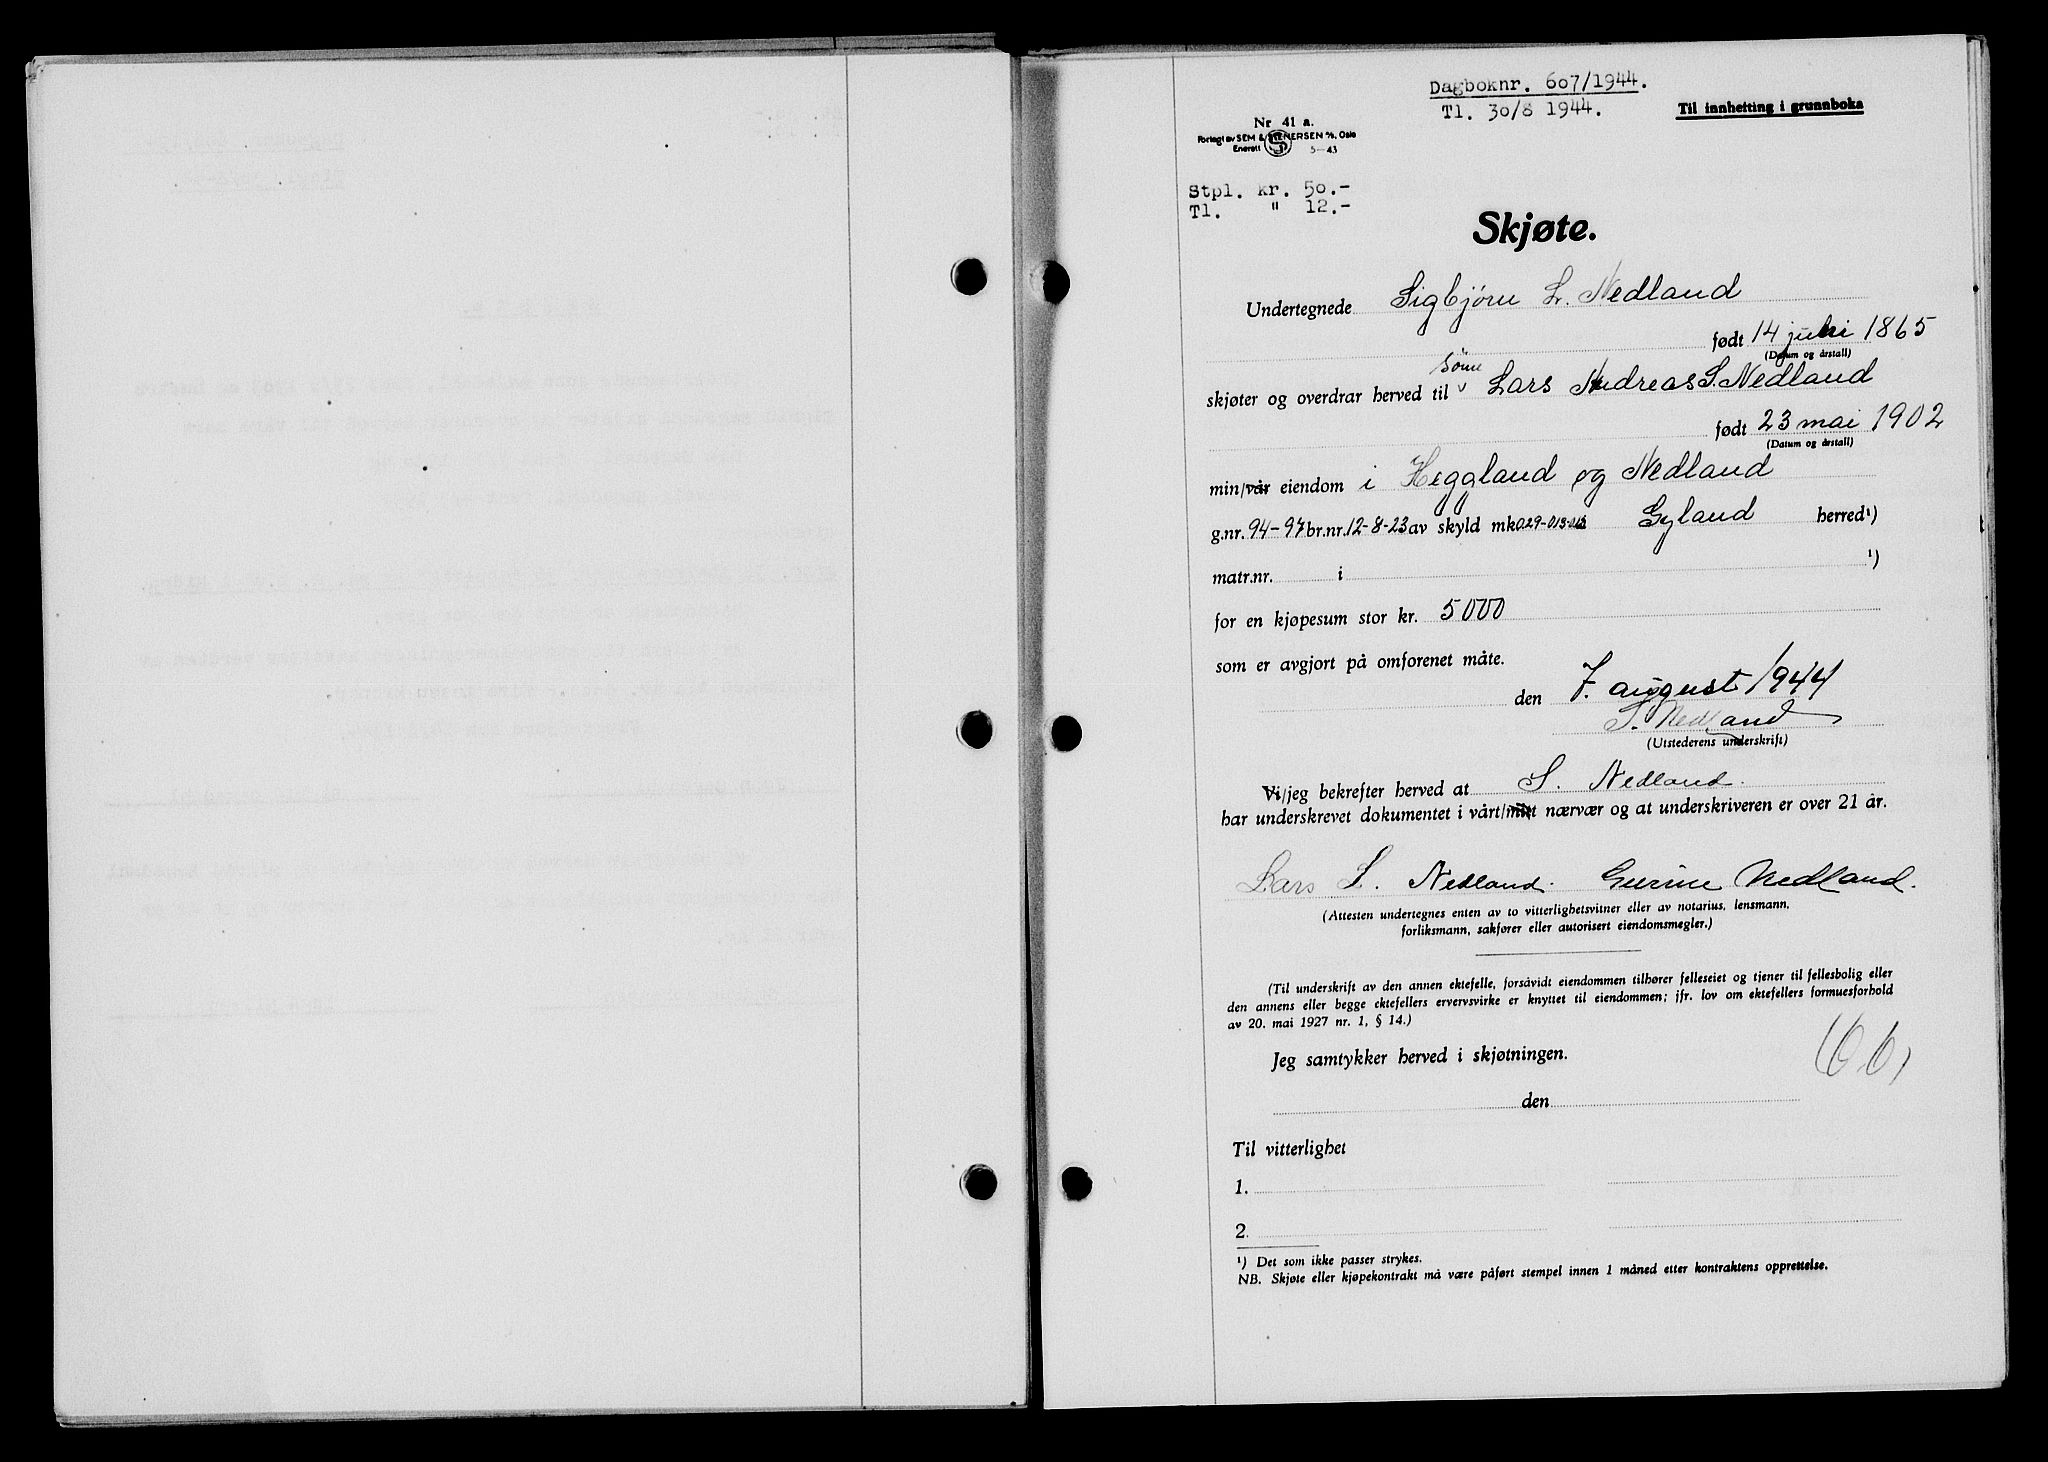 Dagboknr. 607/1944.
Tl. 30/8 1944.
Til innhefting i grunnboka
Nr 41 a.
Forlagt av SEM & STENERSEN A/S, Oslo
Enerett S 5-43
Stpl. kr. 50.-
Tl. " 12.-
Skjøte.
Undertegnede Sigbjörn L. Nedland
født 14 juli 1865
(Datum og årstall)
sönn
skjøter og overdrar herved til v Lars Andreas S. Nedland
født 23 mai 1902
(Datum og årstall)
min/vår eiendom i Heggland og Nedland
g.nr. 94-97 br.nr. 12-8-23 av skyld mk 029-013- Gyland herred¹)
matr.nr. i ¹)
for en kjøpesum stor kr. 5000
som er avgjort på omforenet måte.
den 7. august 1944
S. Nedland
(Utstederens underskrift)
Vi/jeg bekrefter herved at S. Nedland.
har underskrevet dokumentet i vårt/mitt nærvær og at underskriveren er over 21 år.
Lars S. Nedland. Gurine Nedland.
(Attesten undertegnes enten av to vitterlighetsvitner eller av notarius, lensmann,
forliksmann, sakfører eller autorisert eiendomsmegler.)
(Til underskrift av den annen ektefelle, forsåvidt eiendommen tilhører felleseiet og tjener til fellesbolig eller
den annens eller begge ektefellers ervervsvirke er knyttet til eiendommen; jfr. lov om ektefellers formuesforhold
av 20. mai 1927 nr. 1, § 14.)
Jeg samtykker herved i skjøtningen.
den
Til vitterlighet
1.
2.
¹) Det som ikke passer strykes.
NB. Skjøte eller kjøpekontrakt må være påført stempel innen 1 måned etter kontraktens opprettelse.